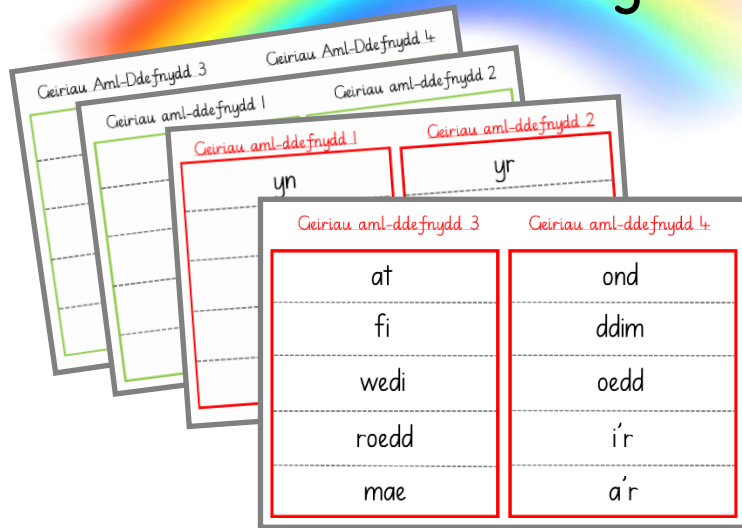 Geiriau Aml-Ddefnydd 3
Geiriau Aml-Ddefnydd 4
Geiriau aml-ddefnydd 1
Geiriau aml-ddefnydd 2
Geiriau aml-ddefnydd 1
Geiriau aml-ddefnydd 2
yn
yr
Geiriau aml-ddefnydd 3
Geiriau aml-ddefnydd 4
at
ond
fi
ddim
wedi
oedd
roedd
i'r
mae
a'r